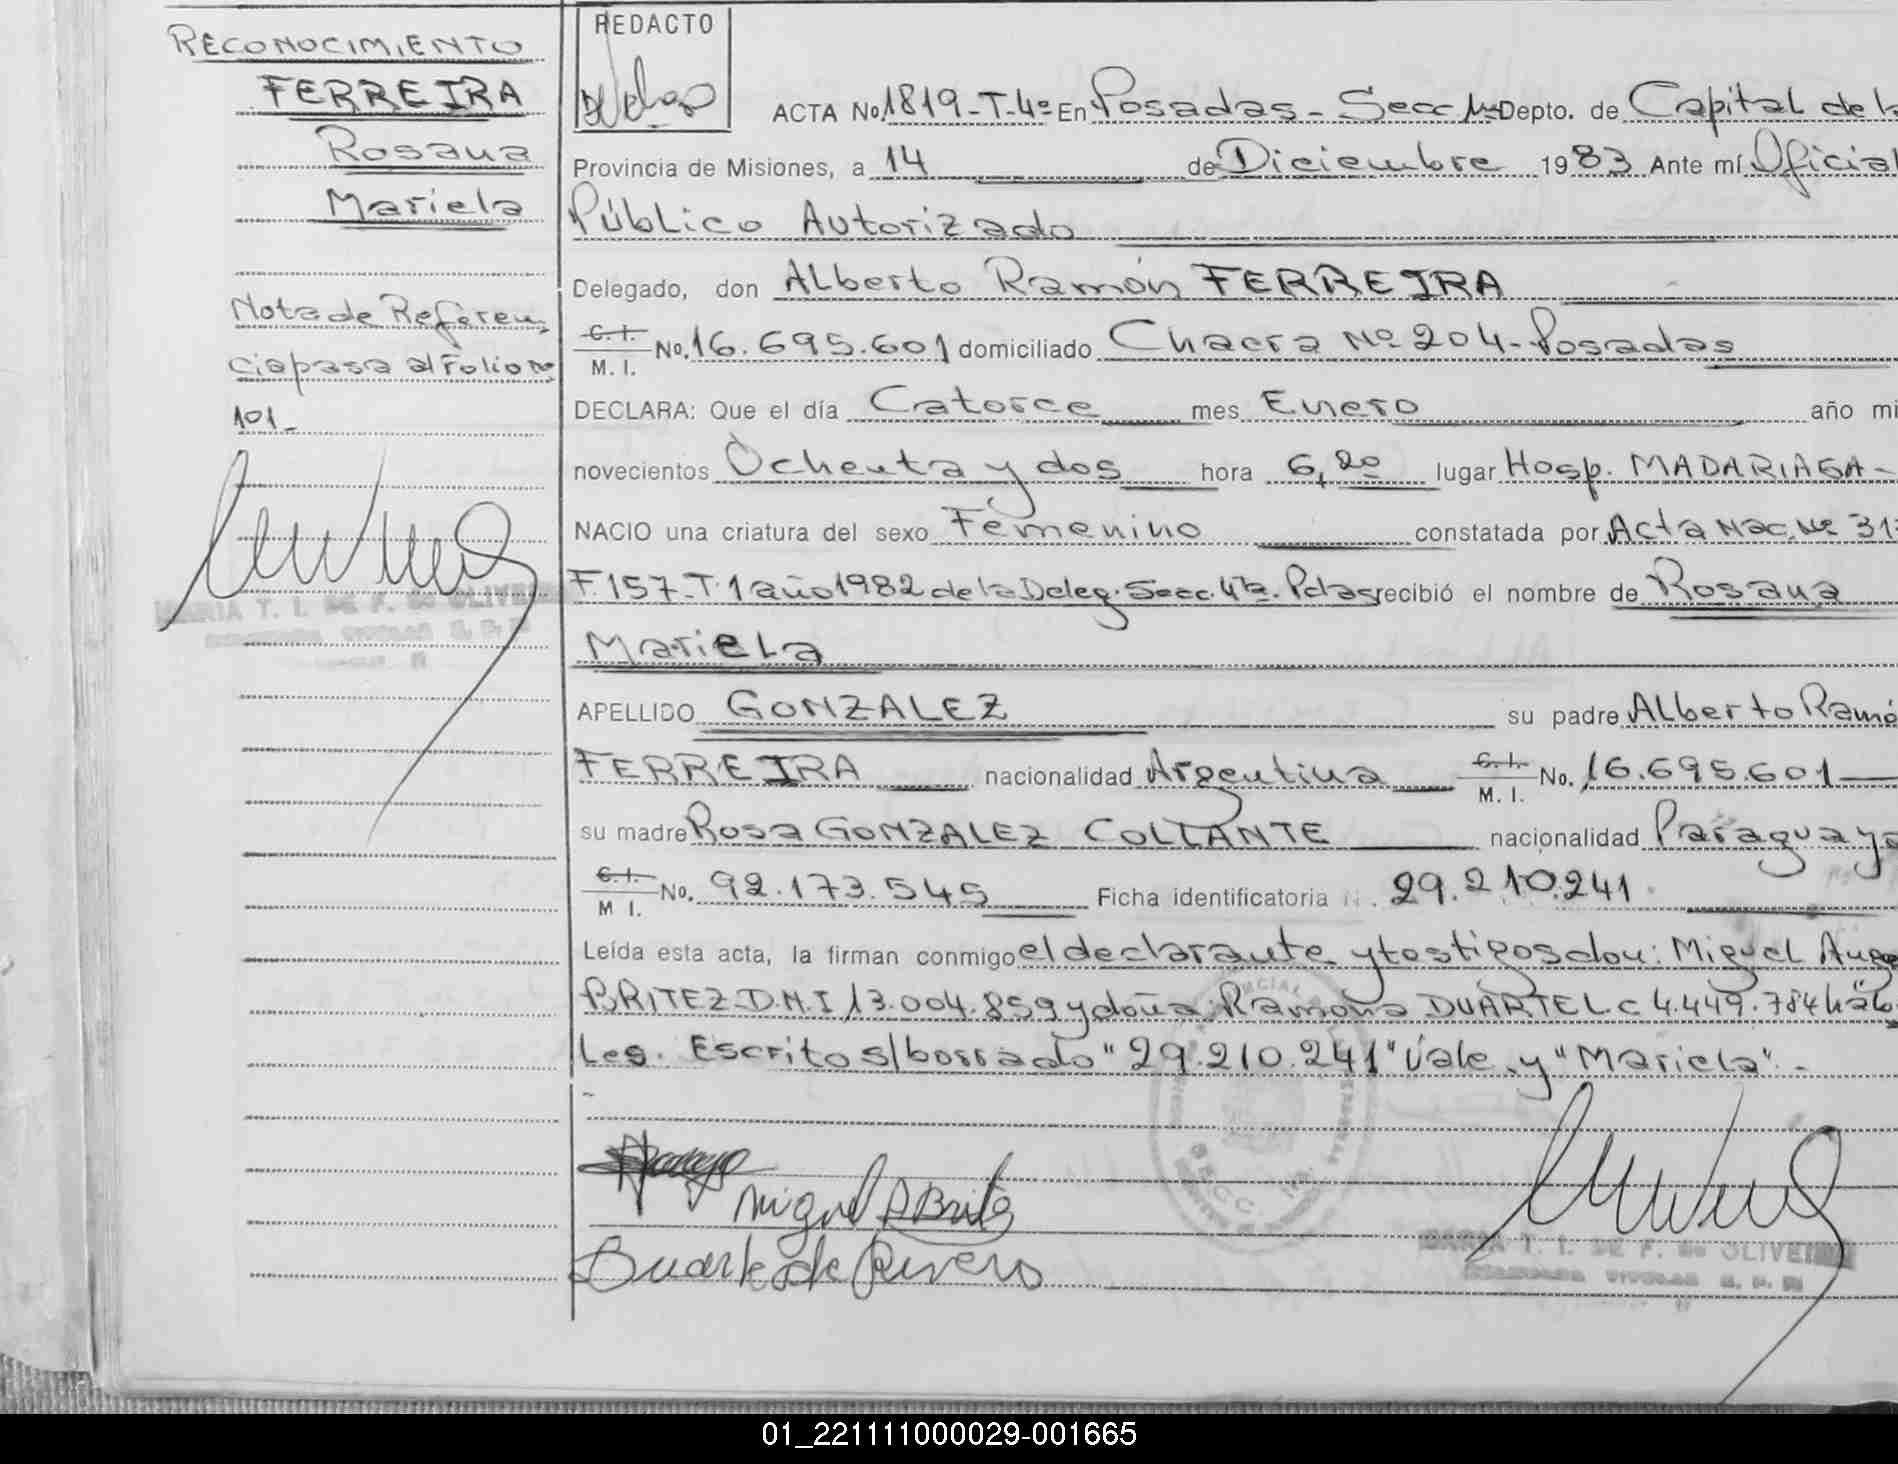 RECONOCIMIENTO
FERREIRA
Rosana
Mariela
Nota de Referen
cia pasa al Folio No
101_
MARIA T. I. DE F. de OLIVEIRA
REDACTO
ACTA No. 1819-T-4º En Posadas - Secc 1ª Depto. de Capital de la
Provincia de Misiones, a 14 de Diciembre 1983 Ante mí Oficial
Público Autorizado
Delegado, don Alberto Ramón FERREIRA
C. I. M. I. No. 16.695.601 domiciliado Chacra Nº 204-Posadas
DECLARA: Que el día Catorce mes Enero año mi
novecientos Ochenta y dos hora 6,20 lugar Hosp. MADARIAGA-
NACIO una criatura del sexo Femenino constatada por Acta Nac. Nº 31
F. 157-T. 1 año 1982 de la Deleg. Secc. 4ta. Pdas recibió el nombre de Rosana
Mariela
APELLIDO GONZALEZ su padre Alberto Ramó
FERREIRA nacionalidad Argentina C. I. M. I. No. 16.695.601
su madre Rosa GONZALEZ COLLANTE nacionalidad Paraguaya
C. I. M I. No. 92.173.545 Ficha identificatoria N. 29.210.241
Leída esta acta, la firman conmigo el declarante y testigos don: Miguel Ange
BRITEZ D.N.I 13.004.859 y doña Ramona DUARTE L.C 4.449.784 hábi
les. Escrito s/borrado "29.210.241" Vale y "Mariela".-
Miguel A Britez
Duarte de Rivero
MARIA T. I. DE F. de OLIVEIRA
01_221111000029-001665